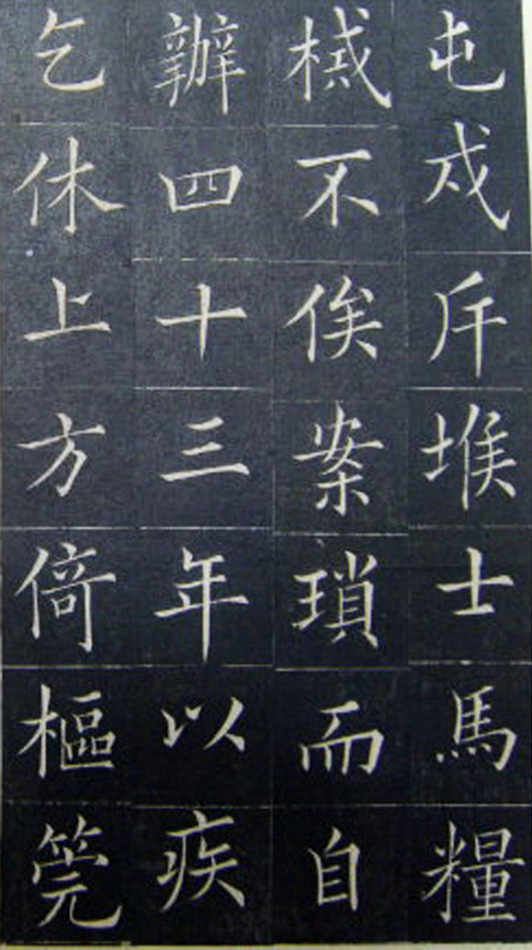 屯戍斥堠士馬糧
械不俟案瑣而自
辦四十三年以疾
乞休上方倚樞筦